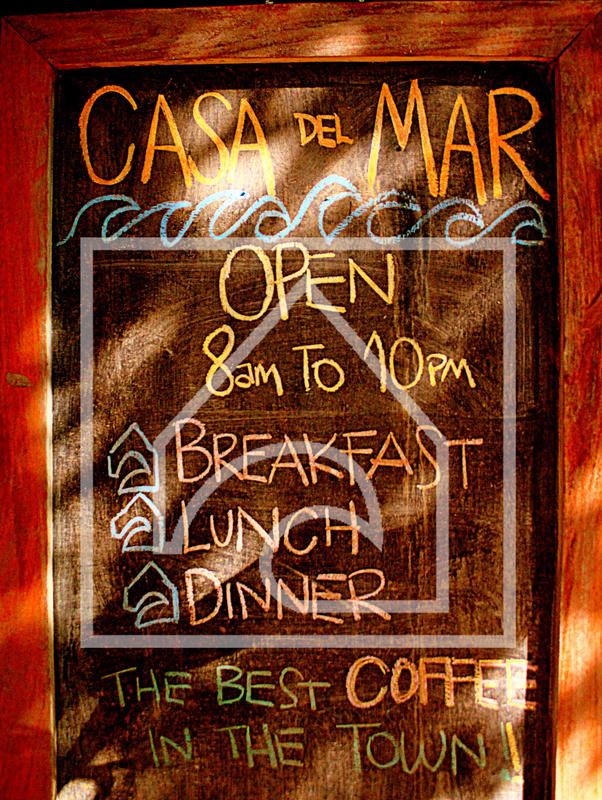 CASA DEL MAR
OPEN
8am TO 10PM
BREAKFAST
LUNCH
DINNER
THE BEST COFFEE
IN THE TOWN!